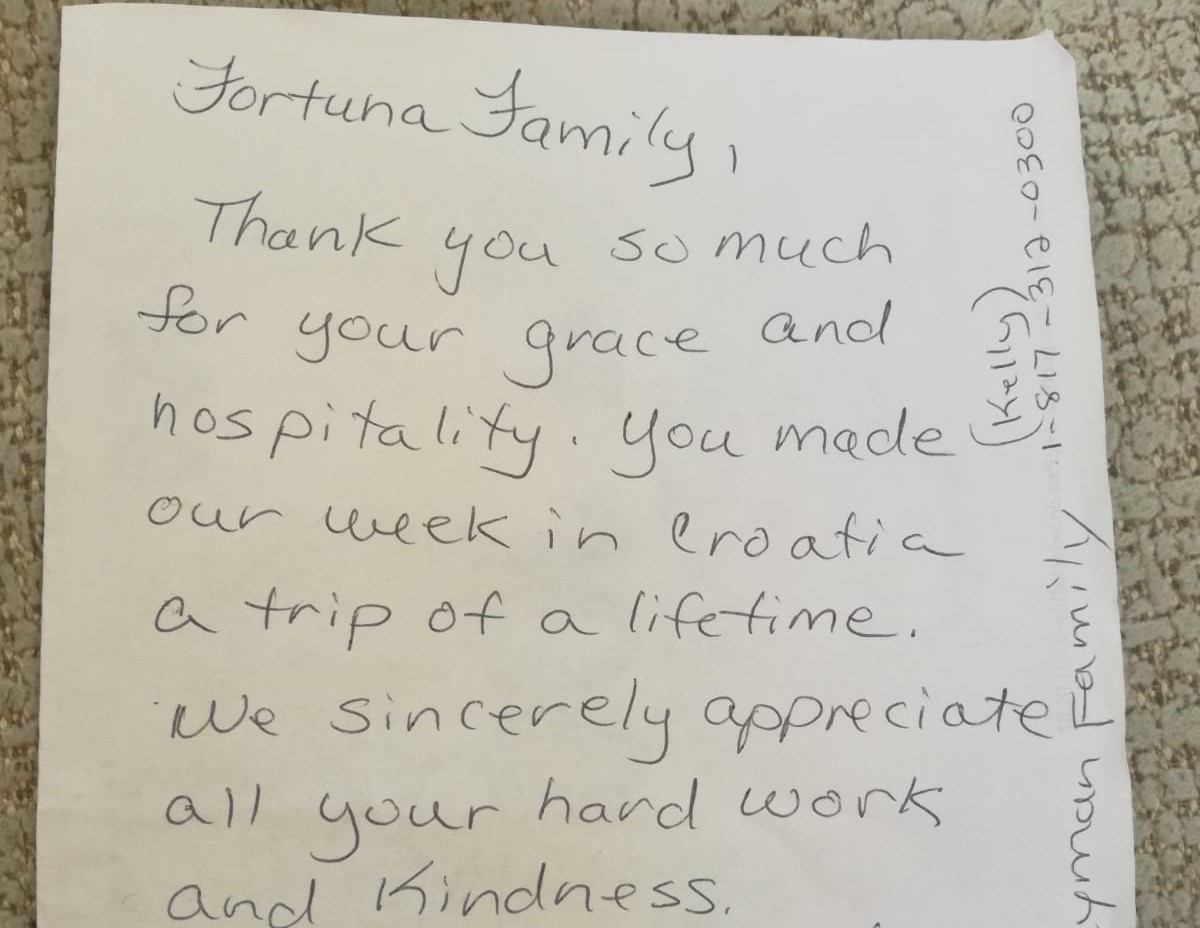 Fortuna Family,
Thank you so much
for your grace and
hospitality. You made
our week in Croatia
a trip of a lifetime.
We sincerely appreciate
all your hard work
and Kindness.
(Kelly)
1-817-312-0300
Family